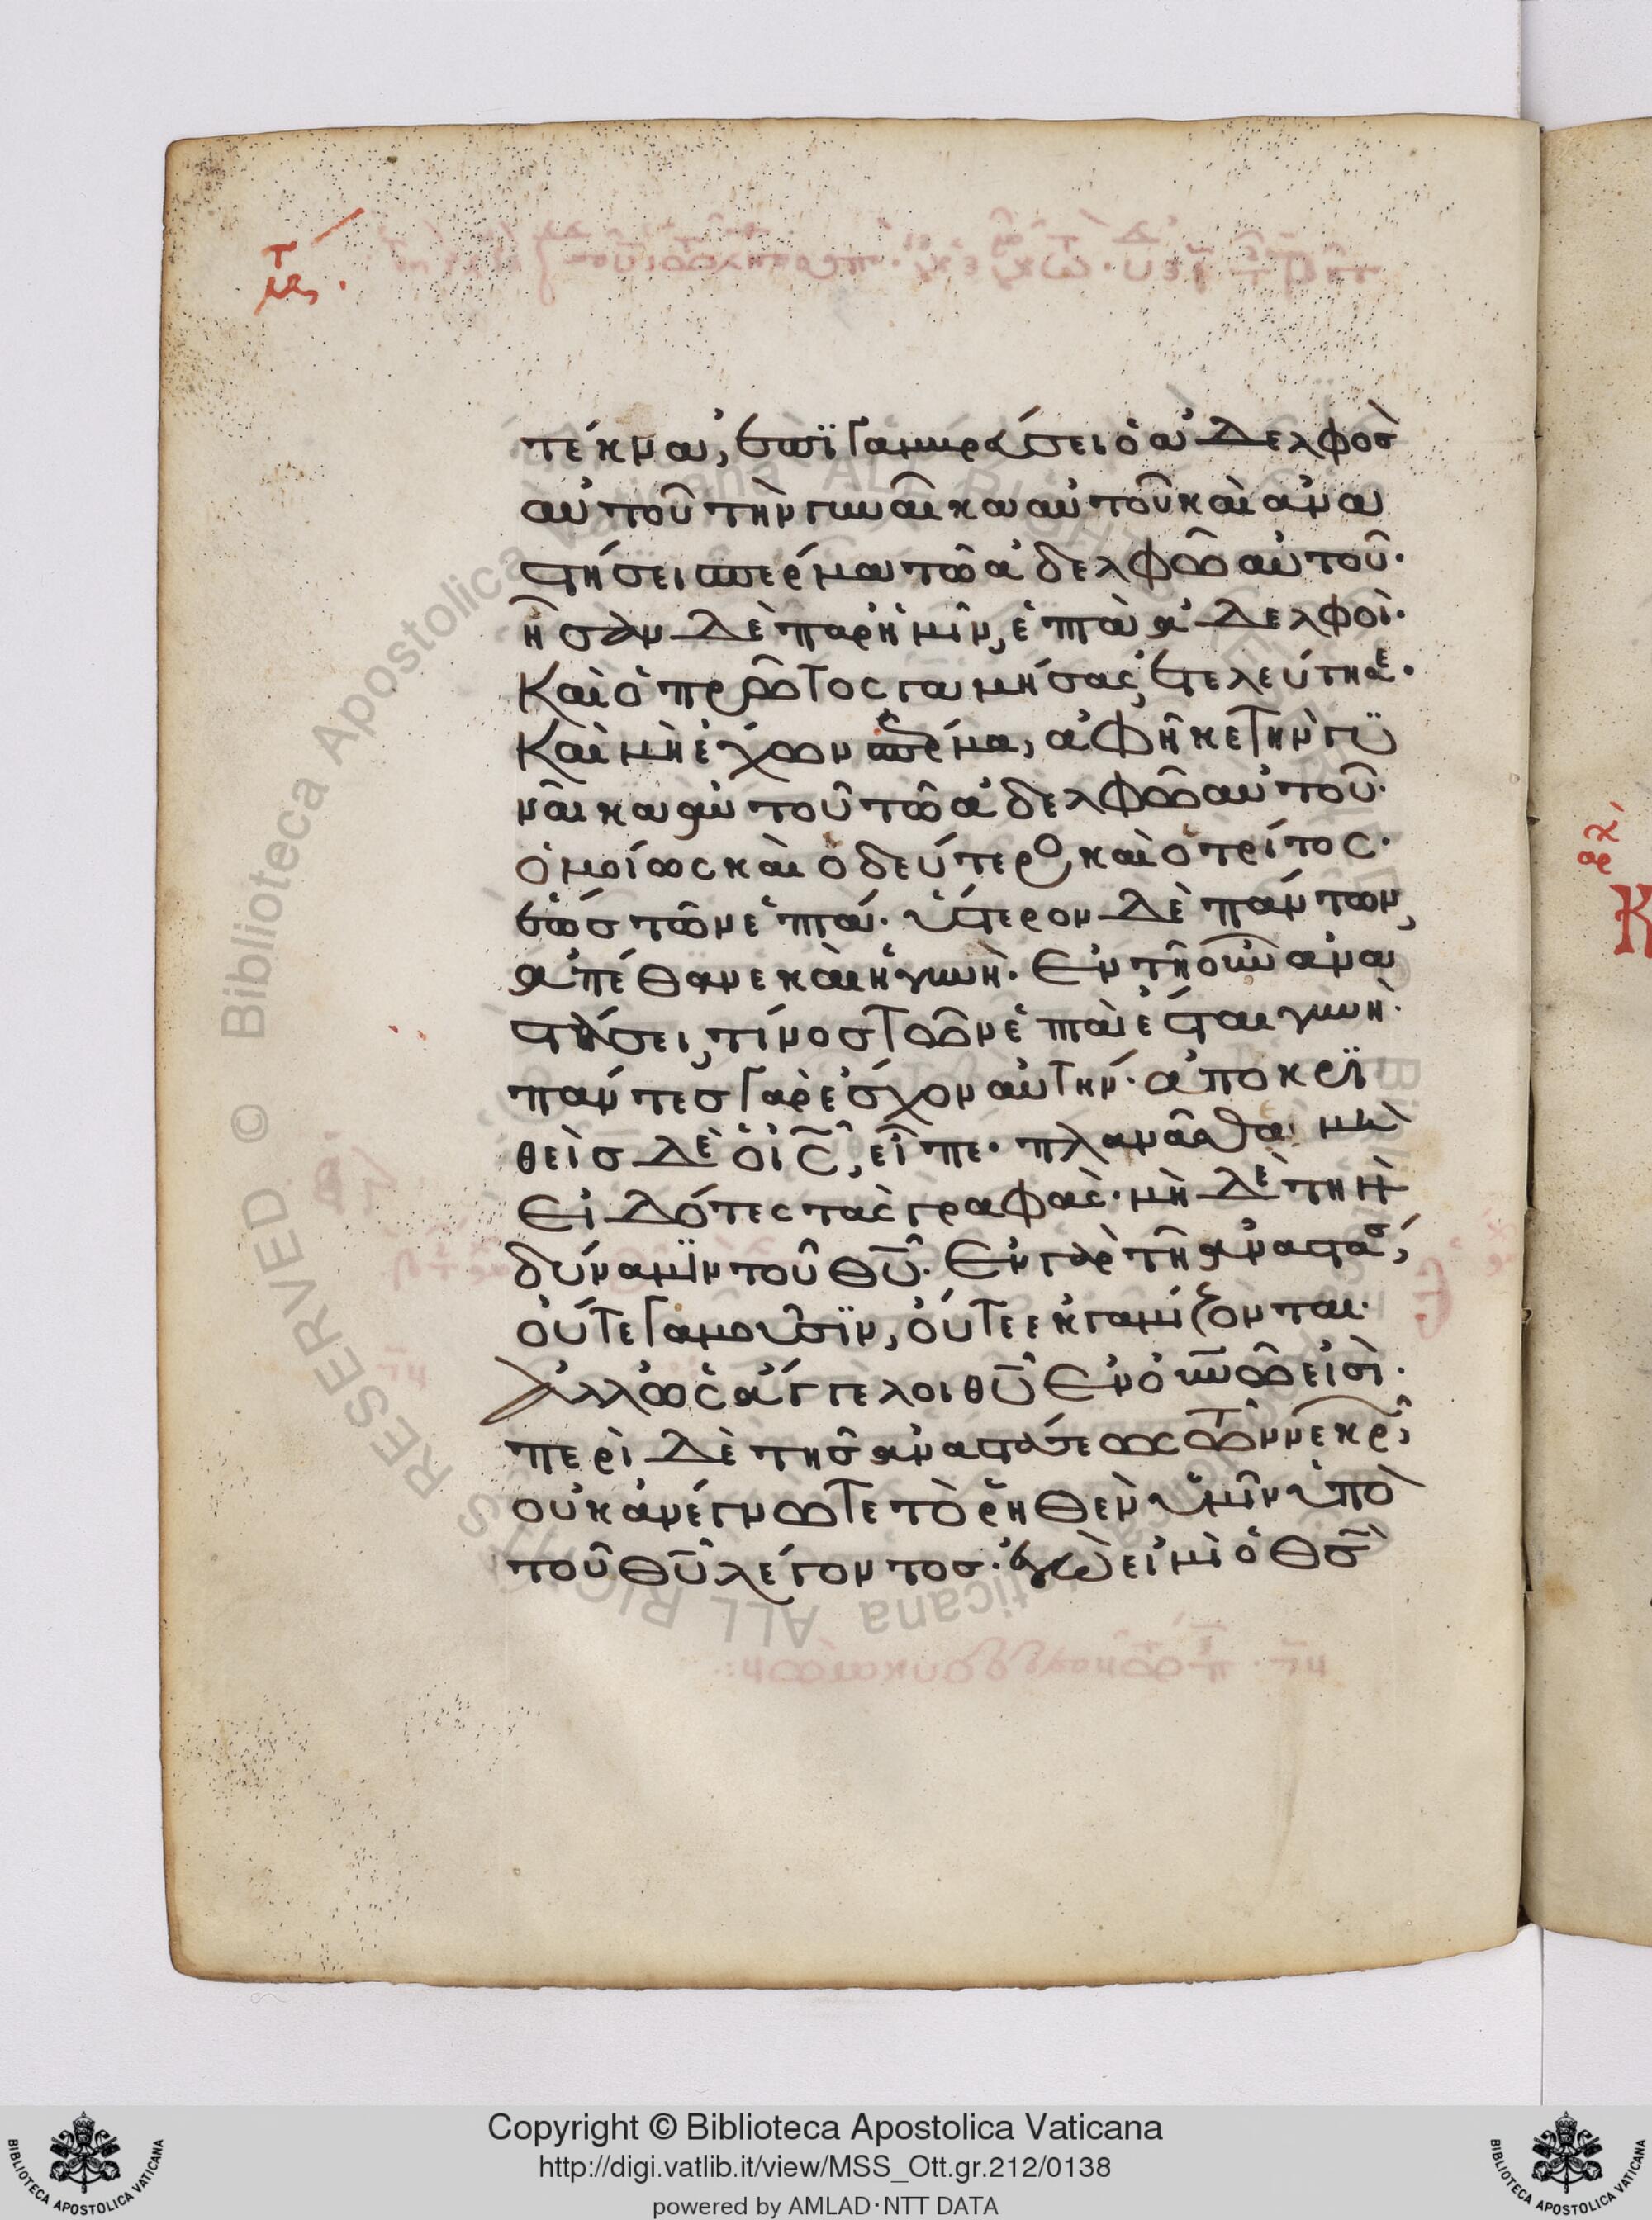 τέκνα, ἐπϊγαμβρεύσει ὁ ἀδελφὸσ
αὐτοῦ τὴν γυναῖκα αὐτοῦ καὶ ἀνα
στήσει σπέρμα τῶ ἀδελφῶ αὐτοῦ·
ἦσαν δὲ παρ ἡμῖν, ἑπτὰ ἀδελφοὶ·
Καὶ ὁ πρῶτος γαμήσας, ἐτελεύτησε·
Καὶ μὴ ἔχων σπέρμα, ἀφῆκε τὴν γυ
ναῖκα αὐτοῦ τῶ ἀδελφῶ αὐτοῦ·
ὁμοίως καὶ ὁ δεύτερος, καὶ ὁ τρίτος·
ἕως τῶν ἑπτά· ὕστερον δὲ πάντων,
ἀπέθανε καὶ ἡ γυνὴ· Εν τῆ οὖν ἀνα
στάσει, τίνοσ τῶν ἑπτὰ ἔσται γυνὴ·
πάντεσ γὰρ ἔσχον αὐτήν· ἀποκρϊ
θεὶσ δὲ ὁ ις, εἶπε· πλανᾶσθαι μὴ
Εἰδότες τὰς γραφὰς· μὴ δὲ τὴν
δύναμϊν τοῦ θυ· Εν γὰρ τῆ ἀναστάσ,
οὔτε γαμοῦσϊν, οὔτε ἐκγαμίζονται·
Ἀλλ ὡς ἄγγελοι θυ Εν οὐνῶ εἰσὶ·
περὶ δὲ τῆσ ἀναστάσεως τῶν νεκρ,
οὐκ ἀνέγνωτε τὸ ῥηθὲν ὑμῖν ὑπὸ
τοῦ θυ λέγοντοσ· ἐγὼ εἰμὶ ὁ θσ
Copyright © Biblioteca Apostolica Vaticana
http://digi.vatlib.it/view/MSS_Ott.gr.212/0138
powered by AMLAD·NTT DATA